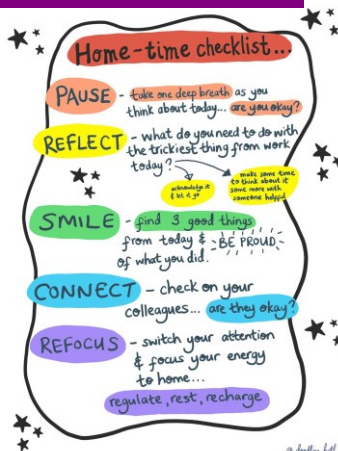 Home-time checklist...
PAUSE - take one deep breath as you
think about today... are you okay?
REFLECT - what do you need to do with
the trickiest thing from work
today?
acknowledge it
& let it go
make some time
to think about it
some more with
someone helpful
SMILE - find 3 good things
from today & BE PROUD
of what you did.
CONNECT - check on your
colleagues... are they okay?
REFOCUS - switch your attention
& focus your energy
to home...
regulate, rest, recharge